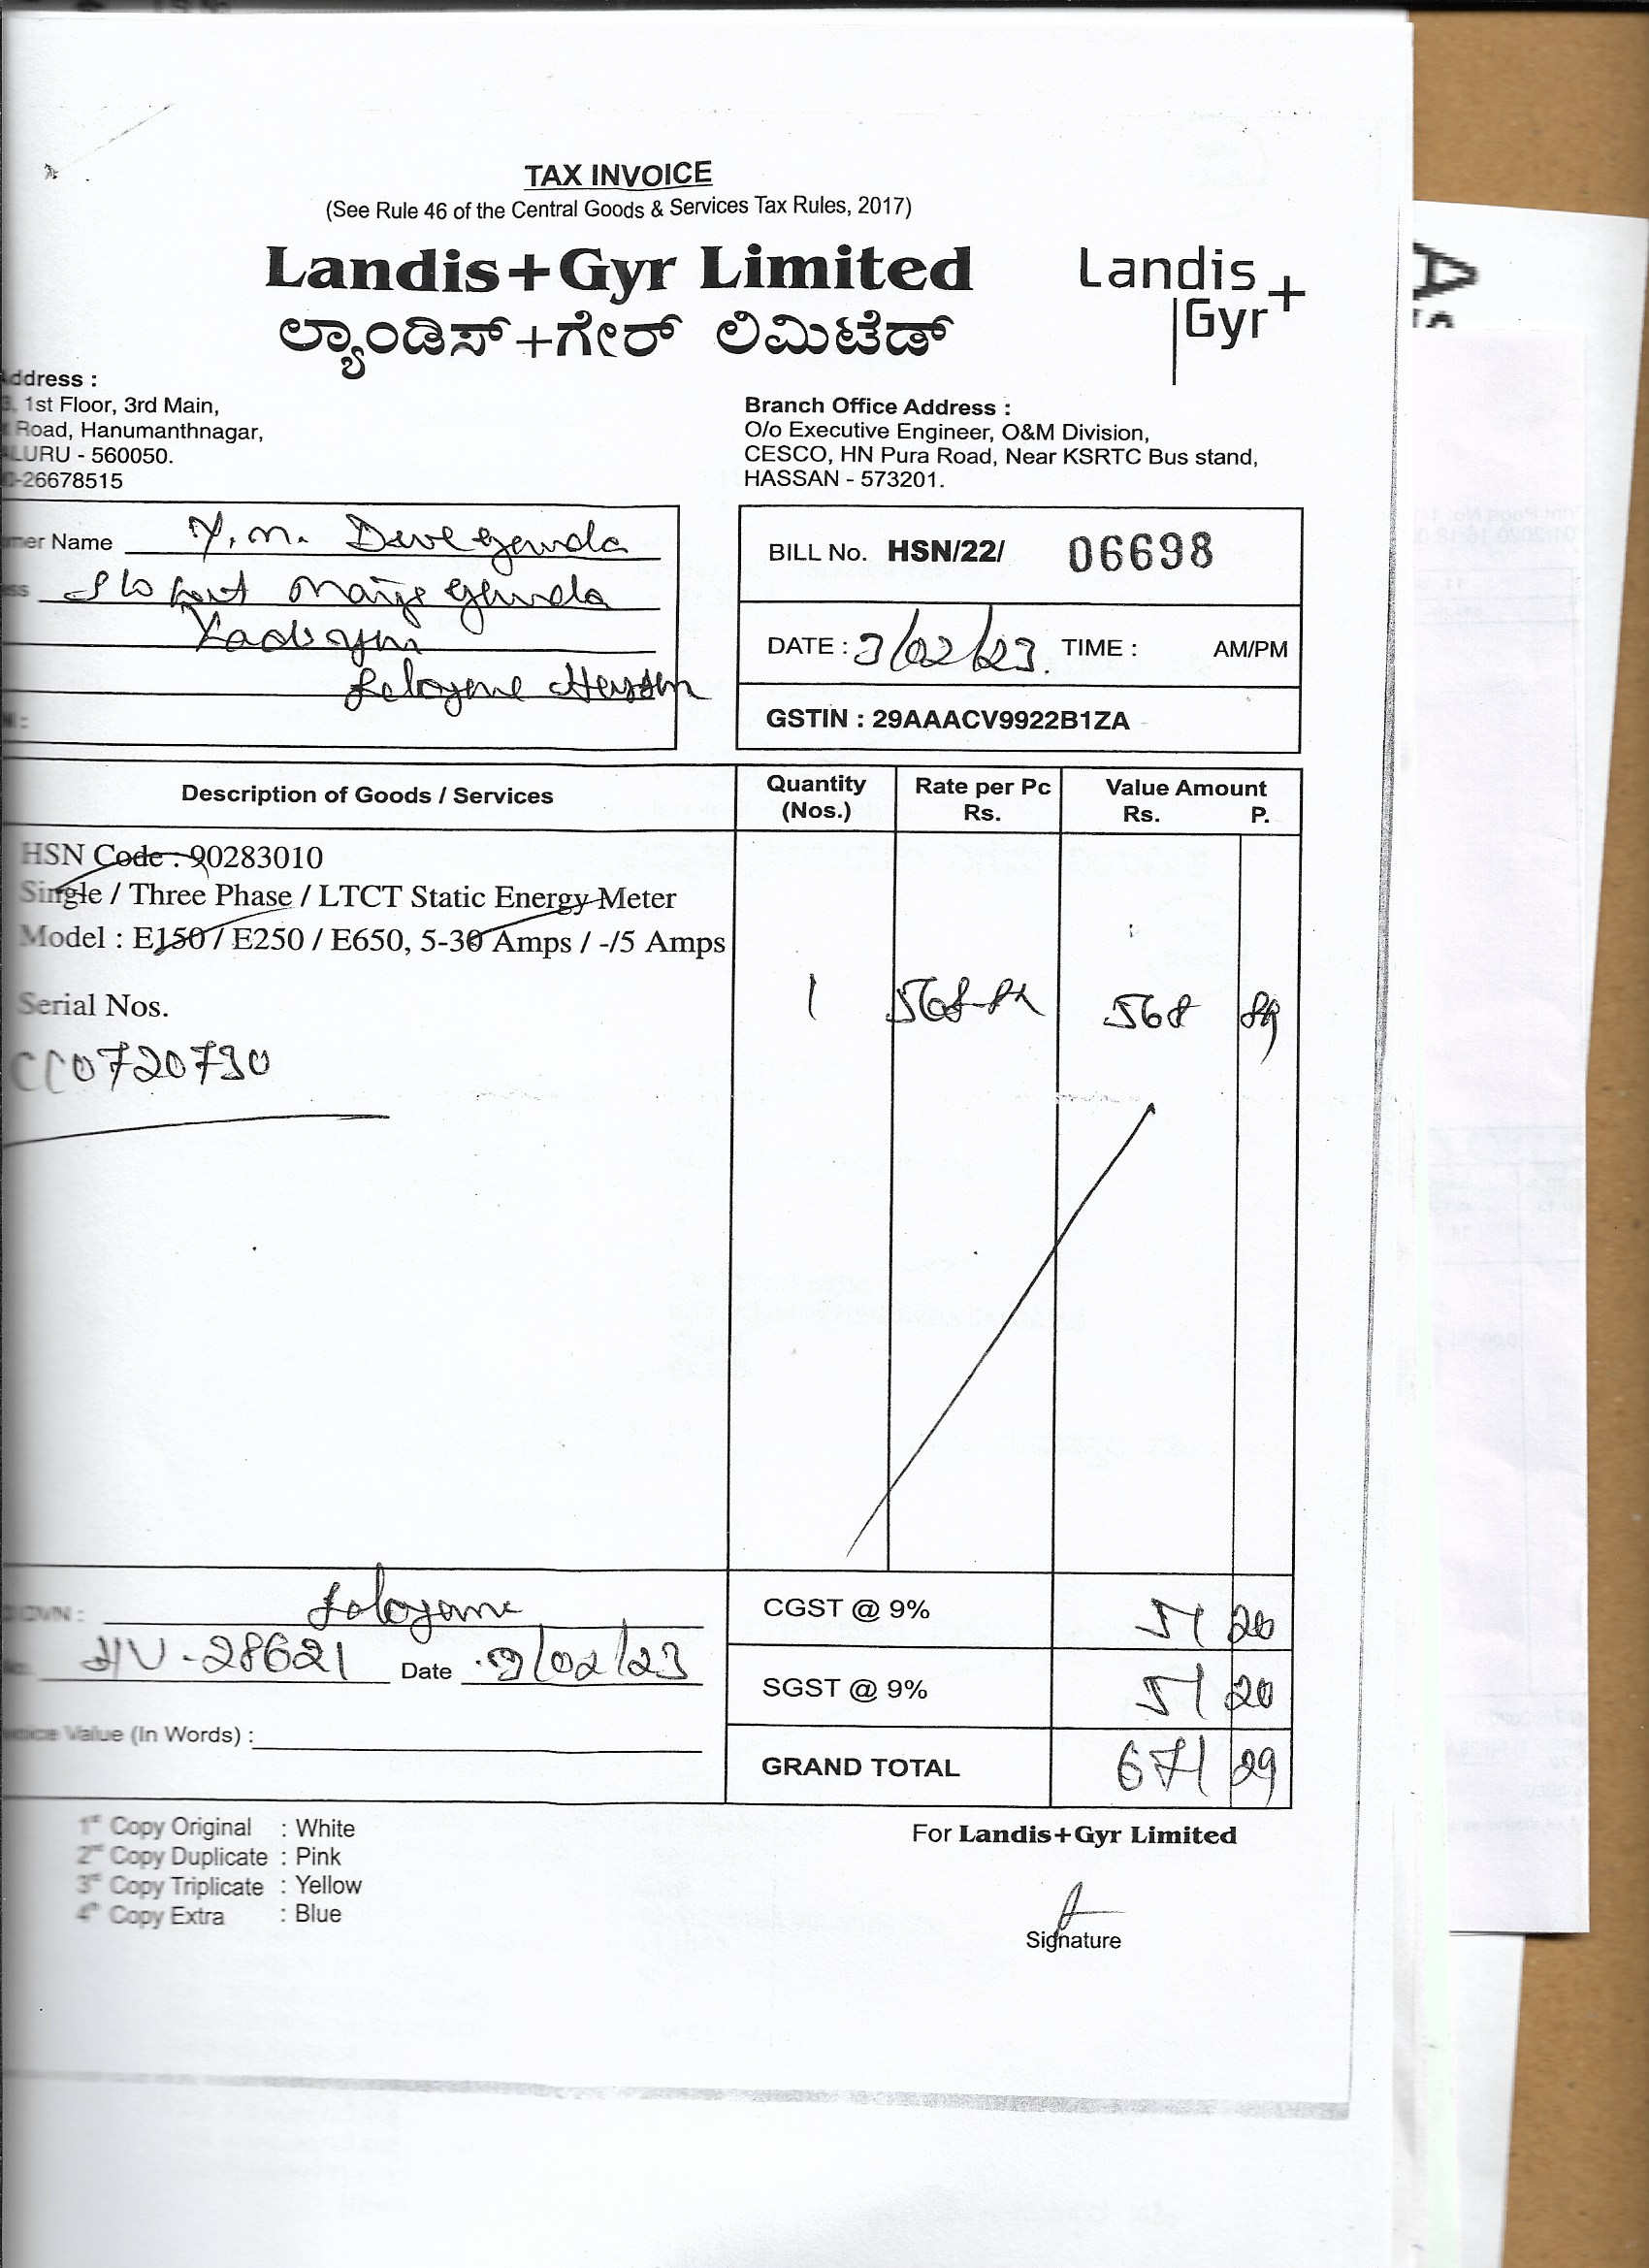 TAX INVOICE
(See Rule 46 of the Central Goods & Services Tax Rules, 2017)
Landis+Gyr Limited
ಲ್ಯಾಂಡಿಸ್+ಗೇರ್ ಲಿಮಿಟೆಡ್
Landis
Gyr+
ddress :
1st Floor, 3rd Main,
Road, Hanumanthnagar,
LURU - 560050.
-26678515
Branch Office Address :
O/o Executive Engineer, O&M Division,
CESCO, HN Pura Road, Near KSRTC Bus stand,
HASSAN - 573201.
mer Name Y. m. Devegowda
BILL No. HSN/22/ 06698
DATE : 3/02/23. TIME : AM/PM
GSTIN : 29AAACV9922B1ZA
Description of Goods / Services
Quantity (Nos.)
Rate per Pc Rs.
Value Amount Rs. P.
HSN Code : 90283010
Single / Three Phase / LTCT Static Energy Meter
Model : E150 / E250 / E650, 5-30 Amps / -/5 Amps
Serial Nos.
1 568-89 568 89
CC0720730
CGST @ 9% 51 20
28621 Date 3/02/23
SGST @ 9% 51 20
Value (In Words) :
GRAND TOTAL 671 29
1st Copy Original : White
2nd Copy Duplicate : Pink
3rd Copy Triplicate : Yellow
4th Copy Extra : Blue
For Landis+Gyr Limited
Signature